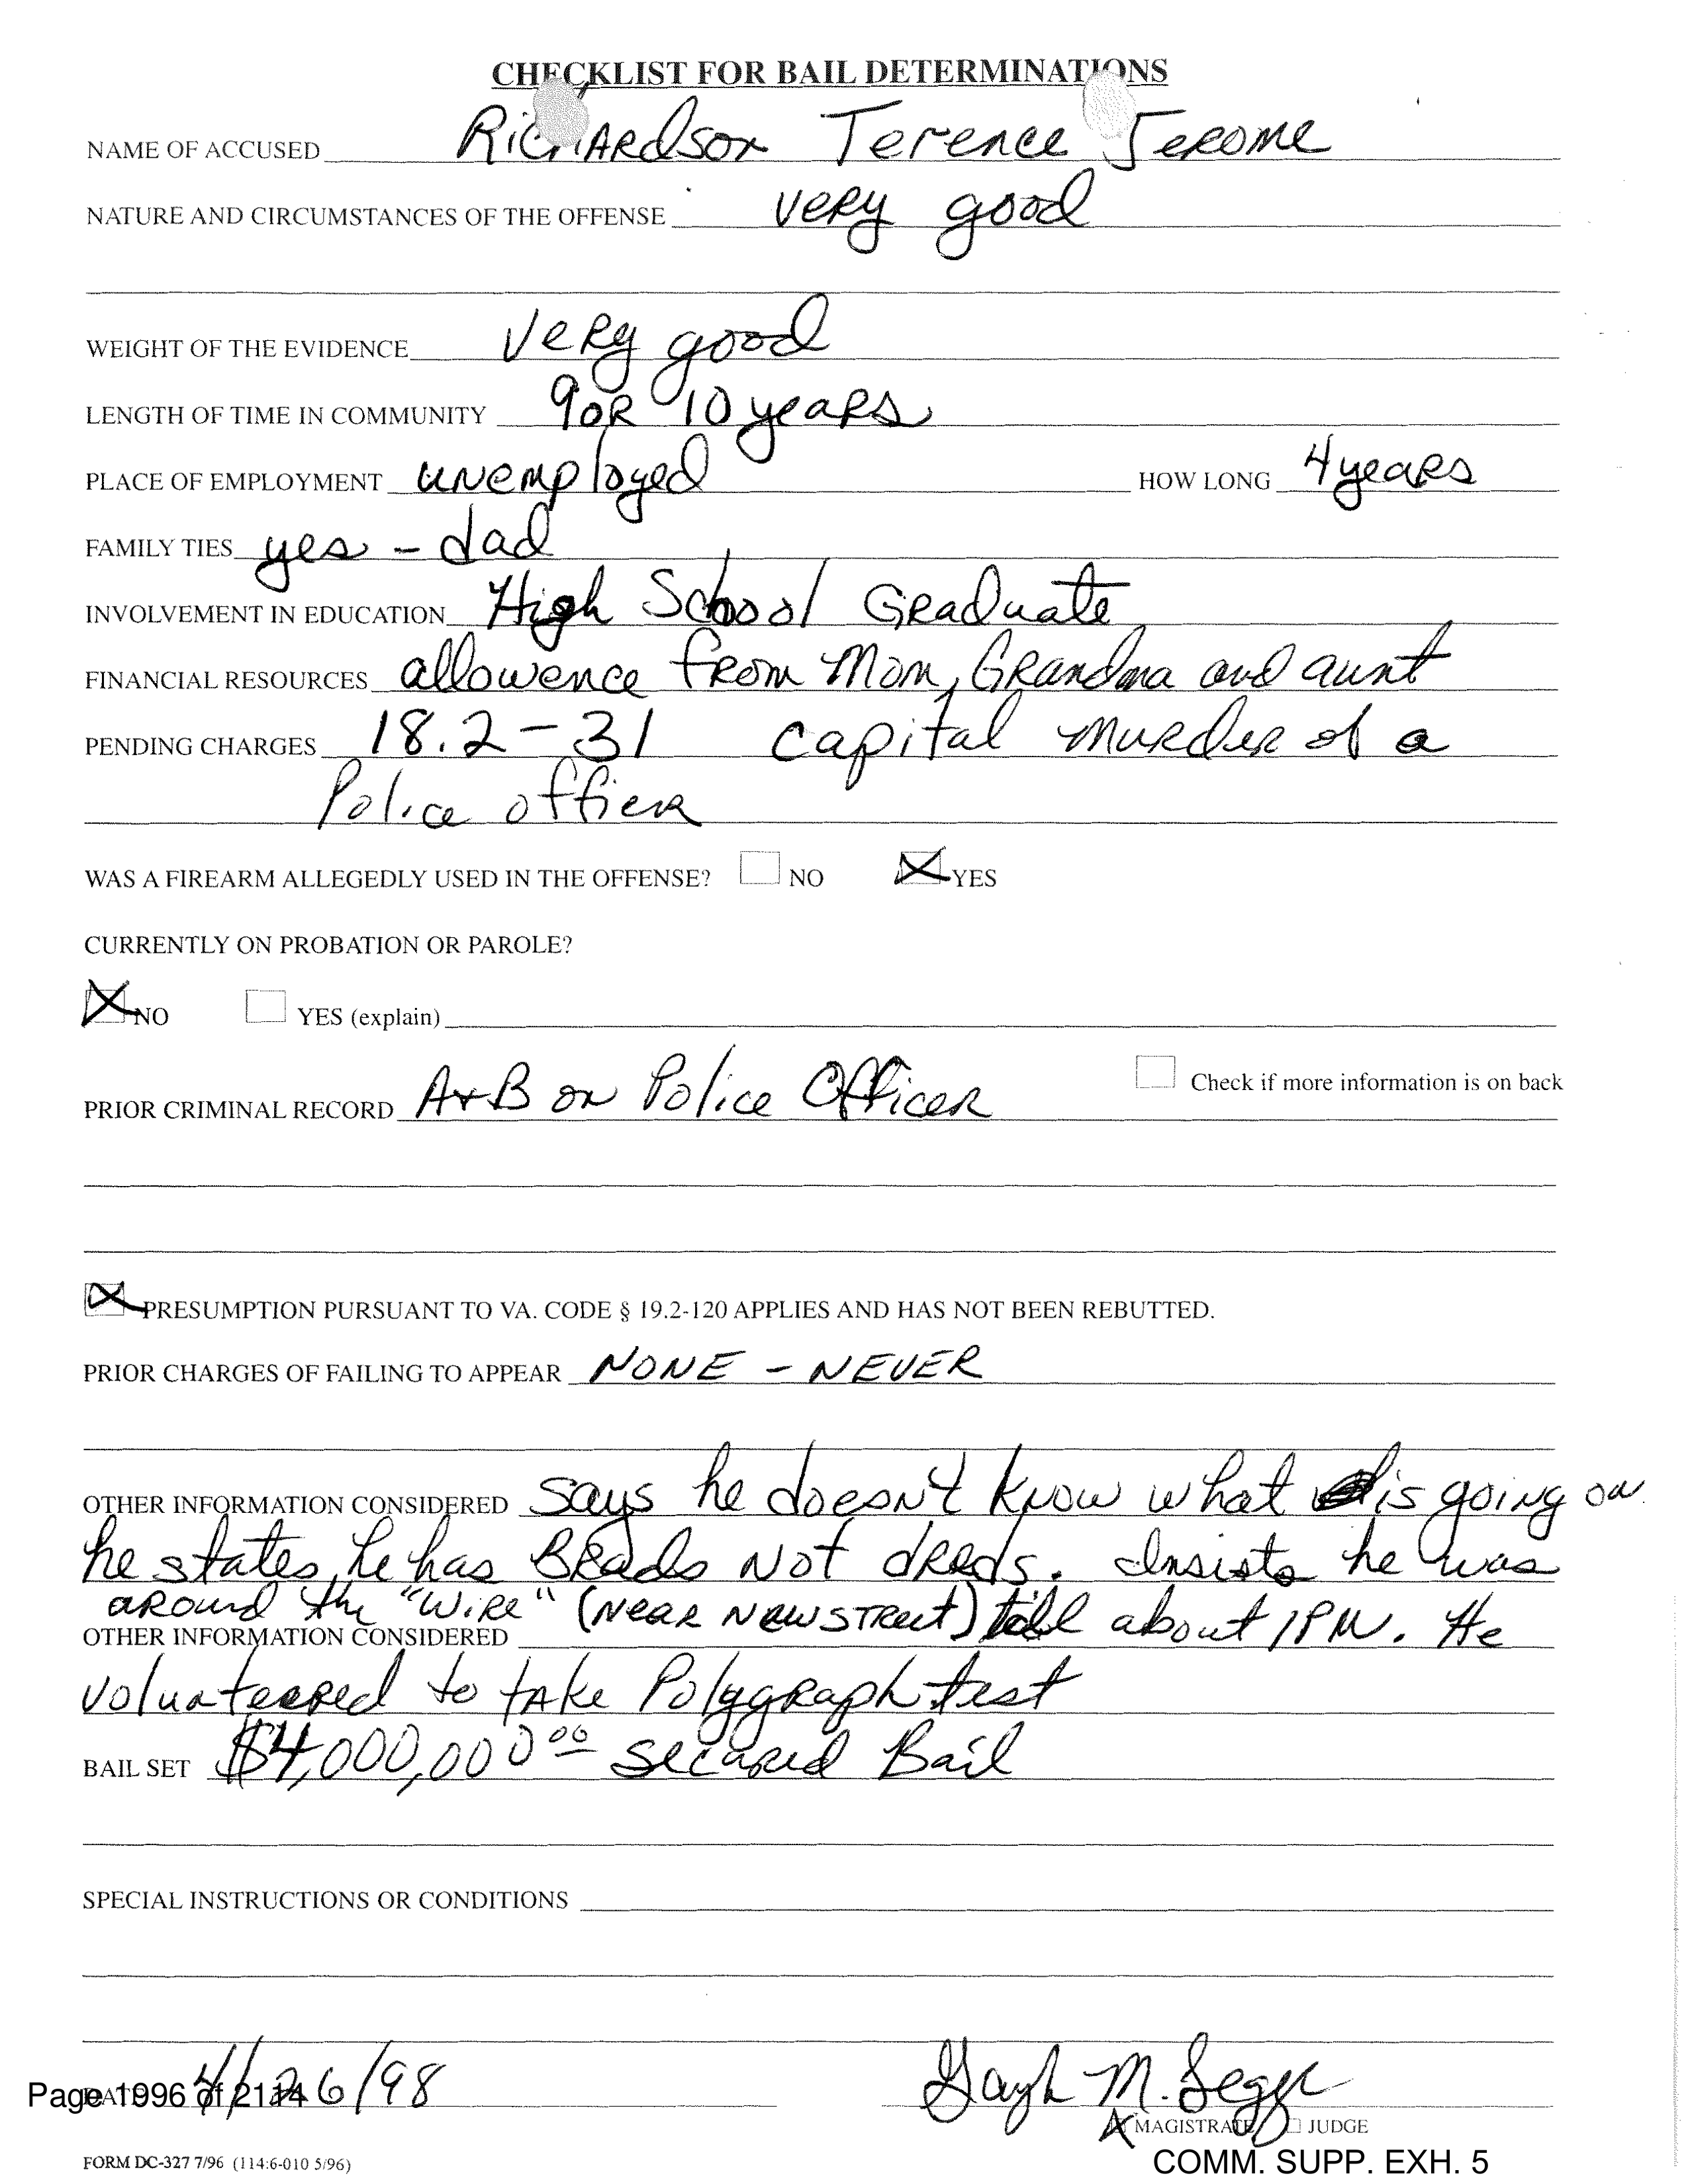 CHECKLIST FOR BAIL DETERMINATIONS
NAME OF ACCUSED Richardson Terence Jerome
NATURE AND CIRCUMSTANCES OF THE OFFENSE very good
WEIGHT OF THE EVIDENCE very good
LENGTH OF TIME IN COMMUNITY 9 or 10 years
PLACE OF EMPLOYMENT unemployed HOW LONG 4 years
FAMILY TIES yes - dad
INVOLVEMENT IN EDUCATION High School Graduate
FINANCIAL RESOURCES allowence from Mom, Grandma and aunt
PENDING CHARGES 18.2-31 capital murder of a
Police officer
WAS A FIREARM ALLEGEDLY USED IN THE OFFENSE? NO YES
CURRENTLY ON PROBATION OR PAROLE?
NO YES (explain)
PRIOR CRIMINAL RECORD A+B on Police Officer Check if more information is on back
PRESUMPTION PURSUANT TO VA. CODE § 19.2-120 APPLIES AND HAS NOT BEEN REBUTTED.
PRIOR CHARGES OF FAILING TO APPEAR NONE - NEVER
OTHER INFORMATION CONSIDERED says he doesn't know what is going on
he states he has Brads not dreds. Insists he was
around the "Wire" (near New Street) till about 1PM. He
OTHER INFORMATION CONSIDERED
volunteered to take Polygraph test
BAIL SET $4,000,000.00 secured Bail
SPECIAL INSTRUCTIONS OR CONDITIONS
Page 1996 of 2114 4/26/98 M.
MAGISTRATE JUDGE
FORM DC-327 7/96 (114:6-010 5/96)
COMM. SUPP. EXH. 5